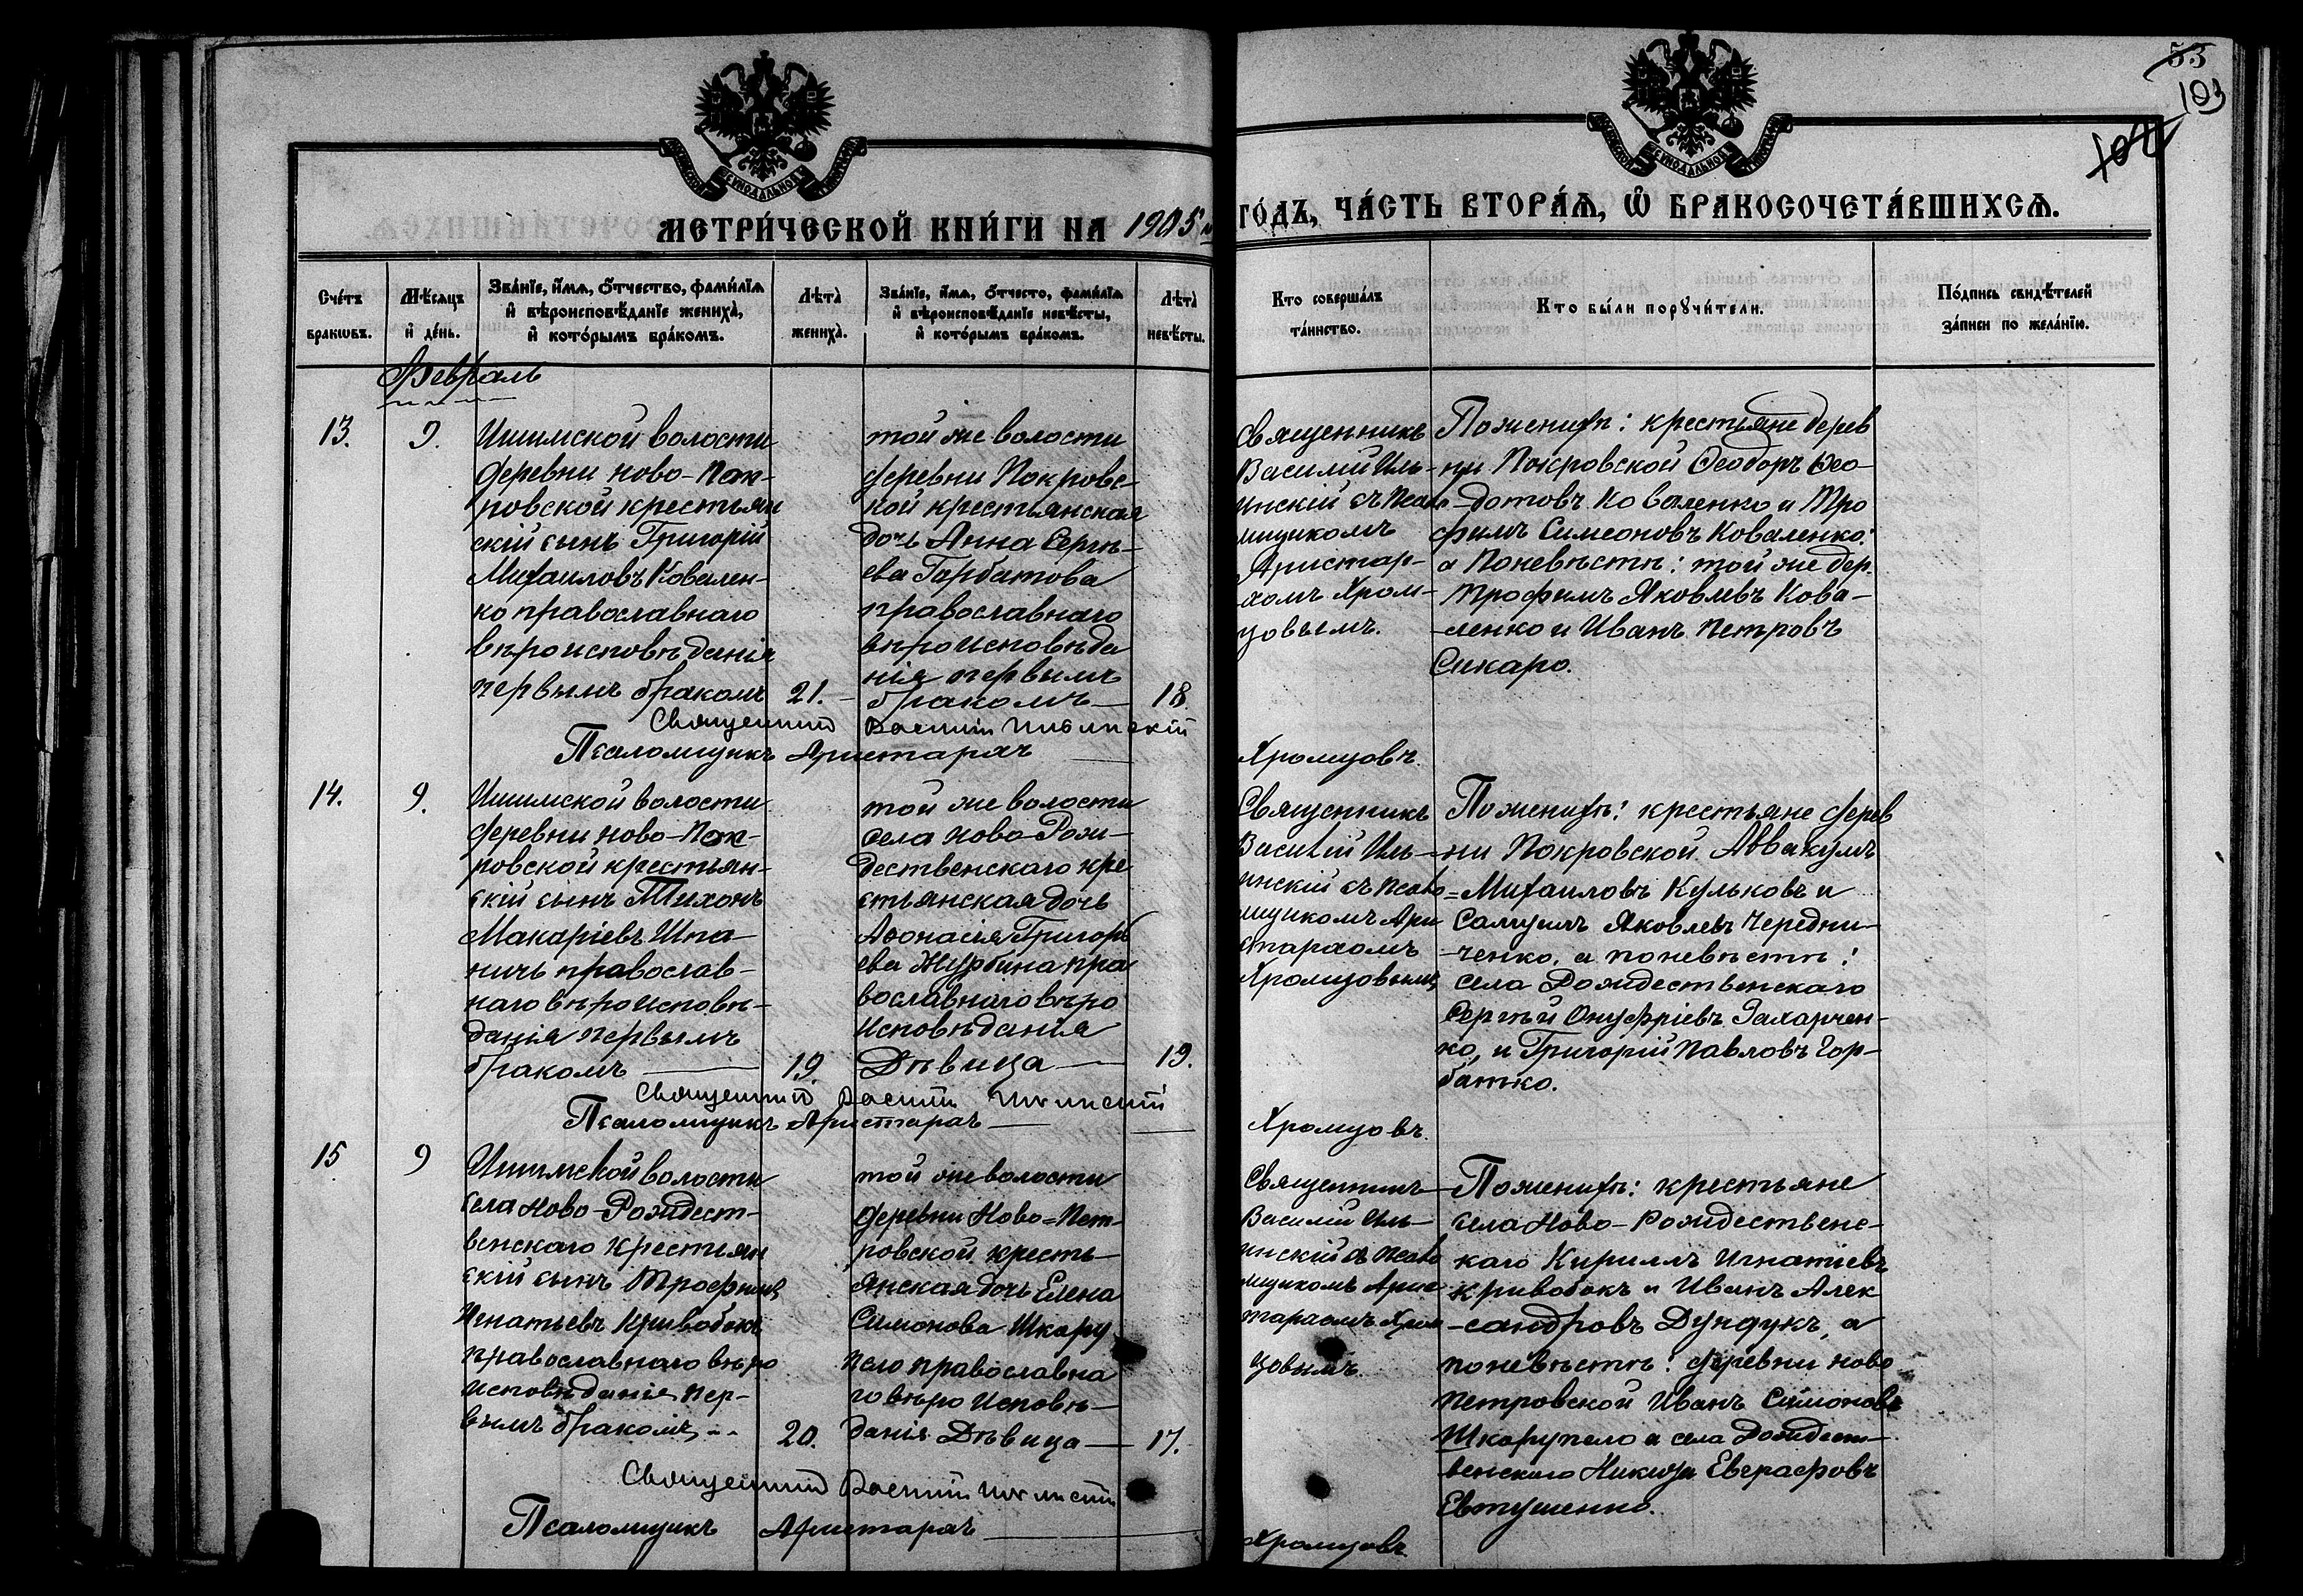 53
103
102
МЕТРИ́ЧЕСКОЙ КНИ́ГИ НА 1905 й
ГО́ДЪ, ЧА́СТЬ ВТОРА́Ѧ, Ѽ БРАКОСОЧЕТА́ВШИХСѦ.
Сче́тъ
браковъ.
Мѣ́сяцъ
и҆ де́нь.
Зва́нїе, и҆́мя, ѻ҆́тчество, фами́лїя
и҆ вѣроисповѣ́данїе жениха̀,
и҆ кото́рымъ бра́комъ.
Лѣ́та
жениха̀.
Зва́нїе, и҆́мя, ѻ҆́тчесто, фами́лїя
и҆ вѣроисповѣ́данїе невѣ́сты,
и҆ кото́рымъ бра́комъ.
Лѣ́та
невѣ́сты.
Кто соверша́лъ
та́инство.
Кто бы́ли порꙋчи́тели.
По́дпись свидѣ́телей
за́писи по жела́нїю.
Февраль
13.
9.
Ишимской волости
деревни ново-Пок-
ровской крестьян
скій сынъ Григорій
Михаиловъ Ковален-
ко православнаго
вѣроисповѣданія
первымъ бракомъ
21.
той же волости
деревни Покровс-
кой крестьянская
дочь Анна Сергѣ-
ева Горбатова
православнаго
вѣроисповѣда
нія первымъ
бракомъ
18.
Священникъ
Василій Иль-
инскій съ Псало
мщикомъ
Аристар-
хомъ Хром-
цовымъ.
Поженихѣ: крестьяне дерев
ни Покровской Ѳеодоръ Ѳео-
дотовъ Коваленко и Тро
фимъ Симеоновъ Коваленко:
а Поневѣстѣ: той же дер.
Трофимъ Яковлевъ Кова-
ленко и Иванъ Петровъ
Сикаро.
Священникъ Василій Ильинскій
Псаломщикъ Аристархъ
Хромцовъ.
14.
9.
Ишимской волости
деревни ново-Пок-
ровской крестьян-
скій сынъ Тихонъ
Макаріевъ Шпа-
ничъ православ-
наго вѣроисповѣ-
данія первымъ
бракомъ
19.
той же волости
села ново-Рож-
дественскаго кре
стьянская дочь
Аѳонасія Григорь
ева Журбина пра
вославнаго вѣро
исповѣданія
Дѣвица
19.
Священникъ
Василій Иль-
инскій съ Псало
мщикомъ Ари
стархомъ
Хромцовымъ
Поженихѣ: крестьяне дерев
ни Покровской Аввакумъ
Михаиловъ Кульковъ и
Самуилъ Яковлевъ Чередни-
ченко, а поневѣстѣ:
села Рождественскаго
Сергѣй Онуфріевъ Захарчен-
ко, и Григорій Павловъ Гор-
батко.
Священникъ Василій Ильинскій
Псаломщикъ Аристархъ
Хромцовъ.
15
9
Ишимской волости
села Ново-Рождест-
венскаго крестьян
скій сынъ Трофимъ
Игнатьевъ Кривобокъ
православнаго вѣро
исповѣданія пер-
вымъ бракомъ
20.
той же волости
деревни Ново=Пет-
ровской кресть-
янская дочь Елена
Симонова Шкару
пело православна
го вѣро исповѣ-
данія Дѣвица
17.
Священникъ
Василій Иль-
инскій съ Псало
мщикомъ Арис
тархомъ Хром
цовымъ.
Поженихѣ: крестьяне
села Ново-Рождественс-
каго Кириллъ Игнатіевъ
Кривобокъ и Иванъ Алек
сандровъ Дундукъ, а
поневѣстѣ: деревни ново
петровской Иванъ Симоновъ
Шкарупело и села Рождест-
венскаго Никита Евграфовъ
Евтушенко.
Священникъ Василій Ильинскій
Псаломщикъ Аристархъ
Хромцовъ